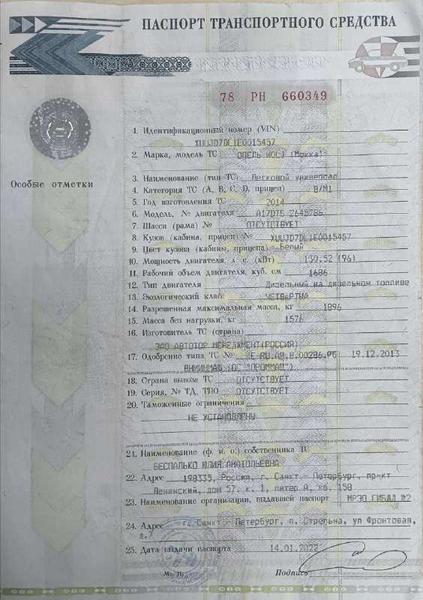 ПАСПОРТ ТРАНСПОРТНОГО СРЕДСТВА
78 РН 660349
Особые отметки
1. Идентификационный номер (VIN)
2. Марка, модель ТС ОПЕЛЬ (Мокка)
3. Наименование (тип ТС) Легковой универсал
4. Категория ТС (A, B, C, D, прицеп) B/M1
5. Год изготовления ТС 2014
6. Модель, № двигателя
7. Шасси (рама) № ОТСУТСТВУЕТ
8. Кузов (кабина, прицеп) №
9. Цвет кузова (кабины, прицепа) Белый
10. Мощность двигателя, л. с. (кВт) (96)
11. Рабочий объем двигателя, куб. см 1686
12. Тип двигателя Дизельный на дизельном топливе
13. Экологический класс
14. Разрешенная максимальная масса, кг 1896
15. Масса без нагрузки, кг 1576
16. Изготовитель ТС (страна)
ЗАО АВТОТОР (РОССИЯ)
17. Одобрение типа ТС № 19.12.2013
18. Страна вывоза ТС ОТСУТСТВУЕТ
19. Серия, № ТД, ТПО ОТСУТСТВУЕТ
20. Таможенные ограничения
НЕ УСТАНОВЛЕНЫ
21. Наименование (ф. и. о.) собственника ТС
БЕСПАЛЬКО ЮЛИЯ АНАТОЛЬЕВНА
22. Адрес 198335, Россия, г. Санкт - Петербург, пр-кт
Ленинский, дом 57, к. 1, литер А, кв. 158
23. Наименование организации, выдавшей паспорт МРЭО ГИБДД №2
24. Адрес г. Санкт - Петербург, п. Стрельна, ул Фронтовая,
25. Дата выдачи паспорта 14.01.2022
М. П. Подпись